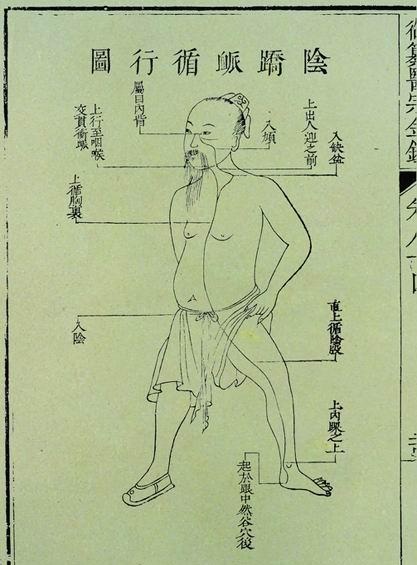 陰蹻脈循行圖
入缺盆
上出人迎之前
入頄
屬目內眥
上行至咽喉
交貫衝脈
上循胸裏
入陰
直上循陰股
上內踝之上
起於跟中然谷穴後
御纂醫宗金鑑